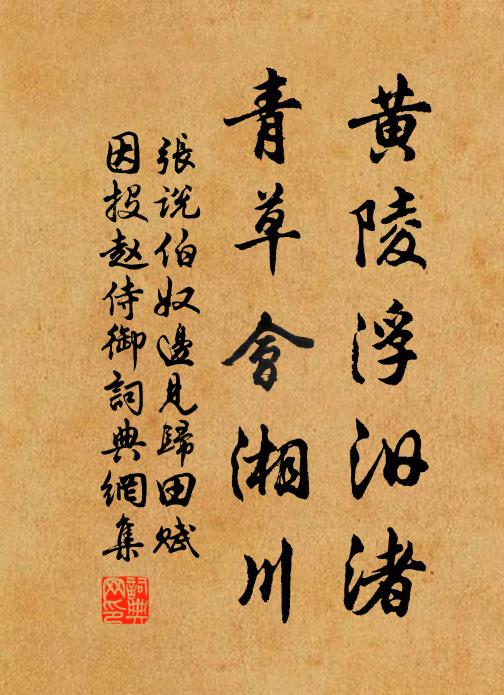 黄陵浮汨渚
青草會湘川
張説伯奴邊見歸田賦
因投赵侍御詞典網集
詞典網印